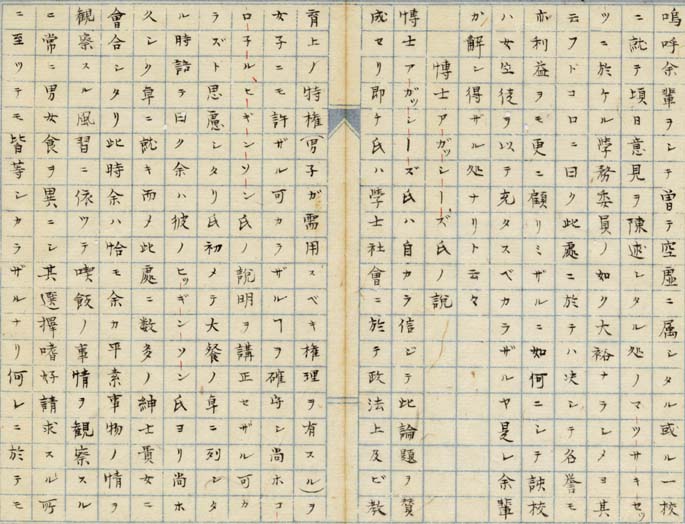 嗚呼余輩ヲシテ曽テ空虚ニ属シタル或ル一校
ニ就テ頃日意見ヲ陳述シタル処ノマッサキセッ
ツニ於ケル學務委員ノ如ク大裕ナラシメヨ其
云フドコロニ曰ク此處ニ於テハ决シテ名誉モ
亦利益ヲモ更ニ顧リミザルニ如何ニシテ該校
ハ女生徒ヲ以テ充タスベカラザルヤ是レ余輩
カ解シ得ザル処ナリト云々
博士アーガッシーズ氏ノ説
博士アーガッシーズ氏ハ自カラ信ジテ此論題ヲ賛
成セリ即チ氏ハ學士社會ニ於テ政法上及ビ教
育上ノ特権(男子ガ需用スベキ権理ヲ有スル)ヲ
女子ニモ許ザル可カラザルヿヲ確守シ尚ホコ
ロ子ール、ヒギーンソーン氏ノ說明ヲ講正セザル可カ
ラズト思慮シタリ氏初メテ大餐ノ卓ニ列シタ
ル時語テ曰ク余ハ彼ノヒッギーンソーン氏ヨリ尚ホ
久シク卓ニ就キ而メ此處ニ数多ノ紳士貴女ニ
會合シタリ此時余ハ恰モ余カ平素事物ノ情ヲ
観察スル風習ニ依ツテ喫飯ノ事情ヲ観察スル
ニ常ニ男女食ヲ異ニシ其選擇嗜好請求スル所
ニ至ツテモ皆等シカラザルナリ何レニ於テモ